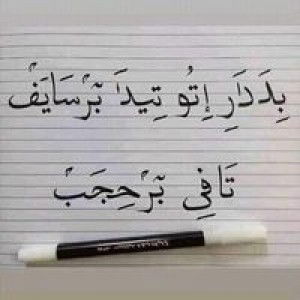 بِدَدَارِ إِتُو تِيدَا بَرْسَايَفْ
تَافِي بَرْحِجَبْ